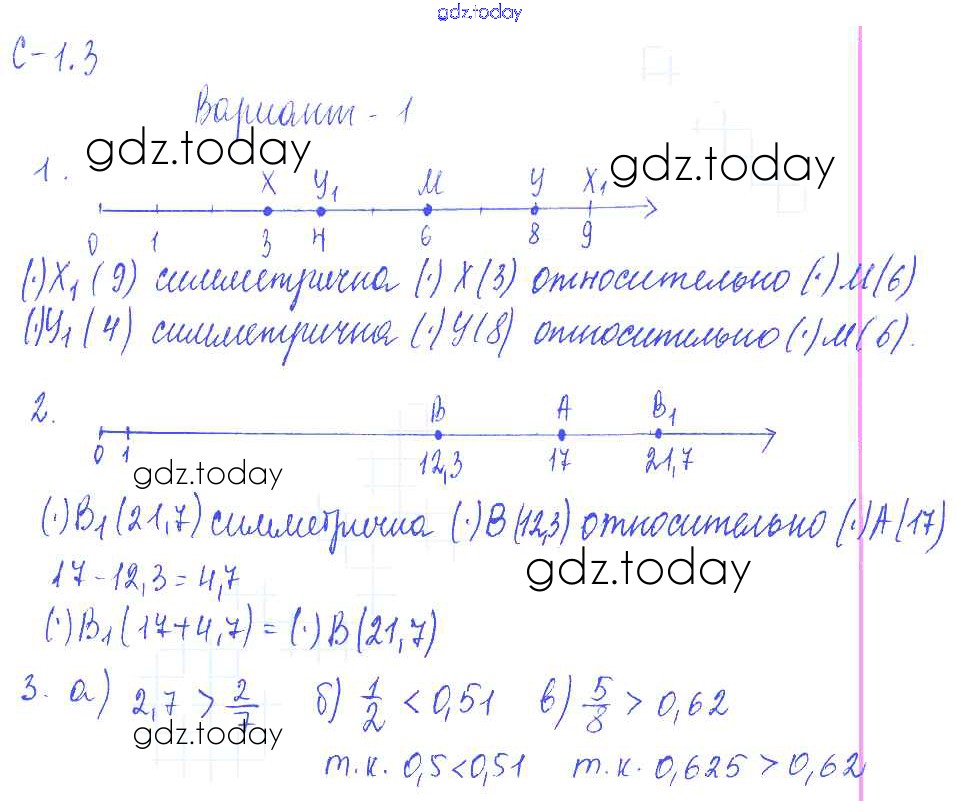 gdz.today
С-1.3
Вариант - 1
gdz.today
gdz.today
1.
X У1 М У X1
0 1 3 4 6 8 9
(·)X1 (9) симметрична (·) X(3) относительно (·) М(6)
(·)У1 (4) симметрична (·) У(8) относительно (·) М(6).
2.
В А В1
0 1 12,3 17 21,7
gdz.today
(·)В1 (21,7) симметрична (·)В(12,3) относительно (·)А(17)
17-12,3=4,7
gdz.today
(·)В1 (17+4,7)=(·)В(21,7)
3. а) 2,7 > 2/7 б) 1/2 < 0,51 в) 5/8 > 0,62
gdz.today
т.к. 0,5<0,51 т.к. 0,625 > 0,62